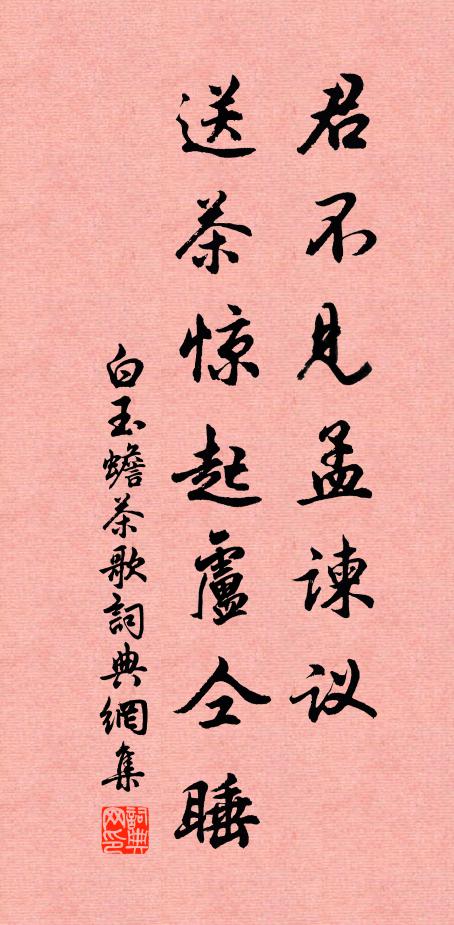 君不见孟谏议
送茶惊起盧仝睡
白玉蟾茶歌詞典網集
詞典网印